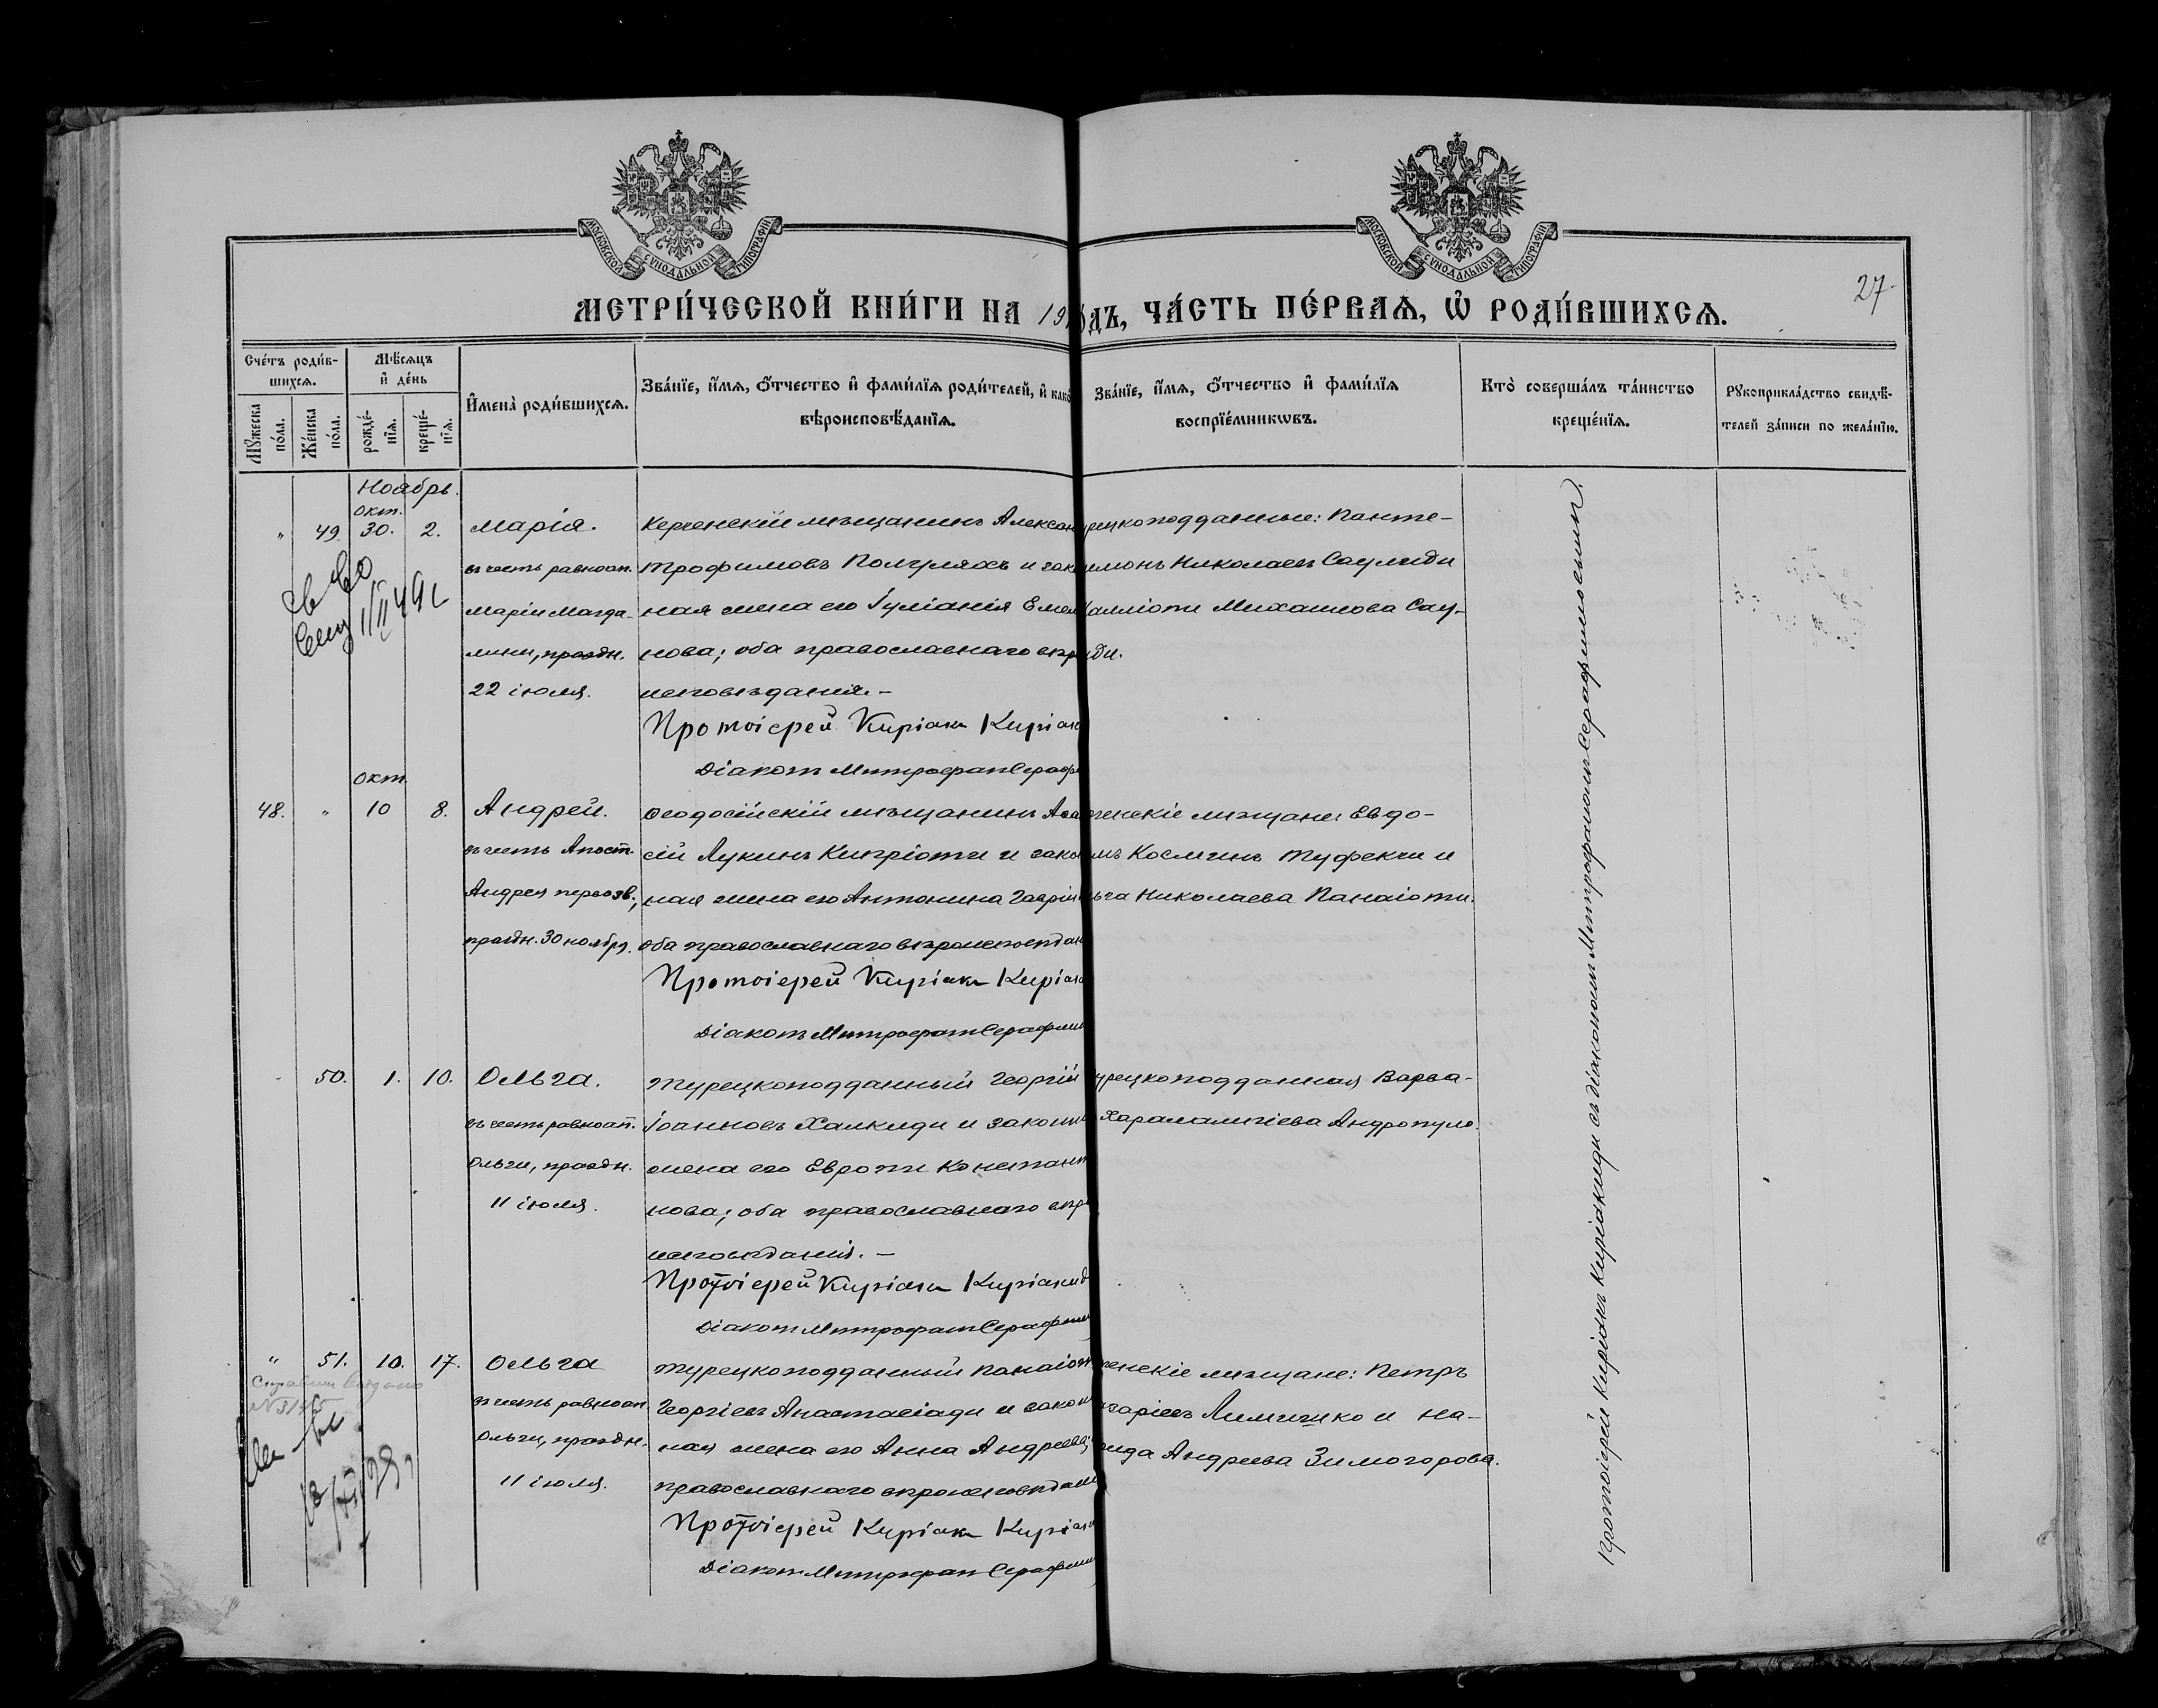 МОСКОВСКОЙ СѴНОДАЛЬНОЙ ТИПОГРАФІИ
МОСКОВСКОЙ СѴНОДАЛЬНОЙ ТИПОГРАФІИ
27.
МЕТРИ́ЧЕСКОЙ КНИ́ГИ НА 19
ДЪ, ЧА́СТЬ ПЕ́РВАѦ, Ѽ РОДИ́ВШИХСѦ.
Сче́тъ роди́в-
шихсѧ.
Мѣ́сѧцъ
и҆ де́нь
Мꙋ́жеска
по́ла.
Же́нска
по́ла.
рожде́-
нїѧ.
креще́-
нїѧ.
И҆мена̀ роди́вшихсѧ.
Зва́нїе, и҆́мѧ, ѻ҆́тчество и҆ фами́лїѧ роди́телей, и҆ како
вѣроисповѣ́данїѧ.
Зва́нїе, и҆́мѧ, ѻ҆́тчество и҆ фами́лїѧ
воспрїе́мникωвъ.
Кто̀ соверша́лъ та́инство
креще́нїѧ.
Рꙋкоприкла́дство свидѣ́-
телей за́писи по жела́нїю.
Ноябрь.
окт.
" 49. 30. 2. Марія.
въ честь равноап.
Маріи Магда-
лины, праздн.
22 іюля.
Керченскій мѣщанинъ Алексан
Трофимовъ Полуляхъ и зак
ная жена его Іуліанія Емел
нова; оба православнаго вѣр
исповѣданія.-
Протоіерей Киріакъ Киріак
Діаконъ Митрофанъ Сераф
рецкоподданные: Панте-
имонъ Николаевъ Саулиди
аліоти Михаилова Сау-
ди.
окт.
48. " 10 8. Андрей.
въ честь Апост.
Андрея первозв.,
праздн. 30 ноября.
Ѳеодосійскій мѣщанинъ Ава
сій Лукинъ Кипріоти и зако
ная жена его Антонина Гаврі
оба православнаго вѣроисповѣдан
Протоіерей Киріакъ Киріак
Діаконъ Митрофанъ Серафим
ченскіе мѣщане: Евдо-
мъ Космичъ Туфекчи и
ьга Николаева Панаіоти.
50. 1. 10. Ольга.
въ честь равноап.
Ольги, праздн.
11 іюля.
Турецкоподданный Георгій
Іоанновъ Халкиди и законн
жена его Европи Констант
нова; оба православнаго вѣр
исповѣданія.-
Протоіерей Киріакъ Киріакид
Діаконъ Митрофанъ Серафим
урецкоподданная Варва-
Харалампіева Андропуло.
" 51. 10. 17. Ольга
въ честь равноап.
Ольги, праздн.
11 іюля.
Турецкоподданный Панаіот
Георгіевъ Анастасіади и закон
ная жена его Анна Андреева;
православнаго вѣроисповѣдані
Протоіерей Киріакъ Киріак
Діаконъ Митрофанъ Серафим
ченскіе мѣщане: Петръ
харіевъ Лимишко и На-
ида Андреева Зимогорова.
Протоіерей Киріакъ Киріакиди съ діакономъ Митрофаномъ Серафимовымъ.